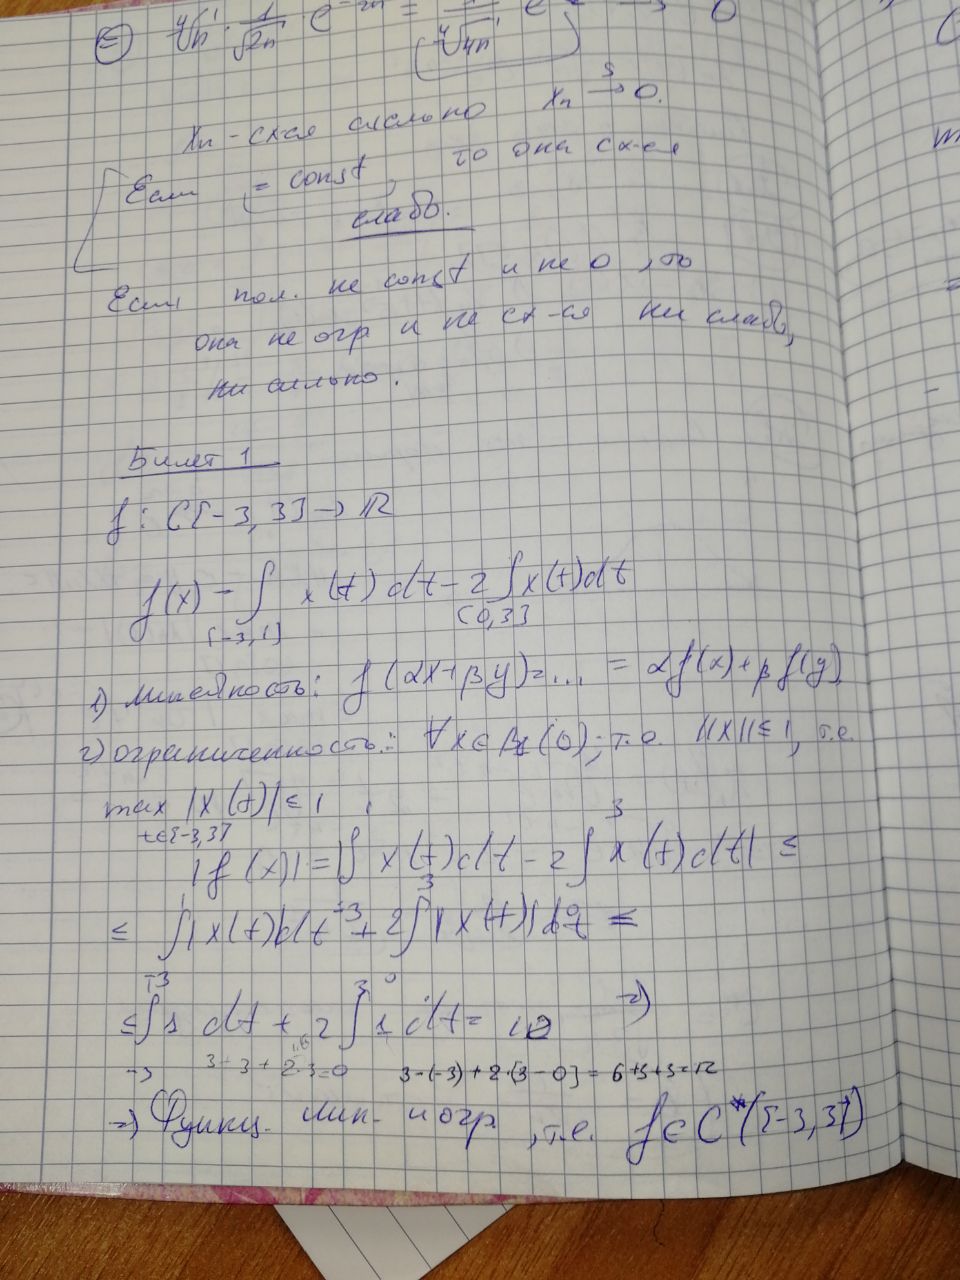 ⊜ ⁴√n · 1/√2n e⁻²ⁿ = 1/⁴√4n e → 0
Xn - сх-ся сильно Xn →ˢ 0.
Если = const, то она сх-ся
слабо.
Если пол. не const и не 0, то
она не огр и не сх-ся ни слабо,
ни сильно.
Билет 1
f: C[-3,3] → ℝ
f(x) = ∫ x(t) dt - 2 ∫ x(t) dt
[-3,1] [0,3]
1) линейность: f(αx+βy)=... = αf(x)+βf(y)
2) ограниченность: ∀x∈B₁(0); т.е. ||x||≤1, т.е.
max |x(t)| ≤ 1,
t∈[-3,3]
|f(x)| = |∫ x(t) dt - 2 ∫³ x(t) dt| ≤
≤ ∫₋₃¹ |x(t)| dt + 2 ∫₀³ |x(t)| dt ≤
≤ ∫₋₃ 1 dt + 2 ∫³ 1 dt = 10 ⇒
3+3+2·3=0 3-(-3)+2·[3-0]=6+3+3=12
⇒ Функц. лин. и огр., т.е. f∈C*([-3,3])